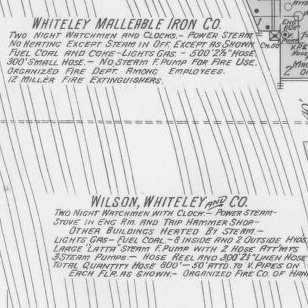 WHITELEY MALLEABLE IRON CO.
TWO NIGHT WATCHMEN AND CLOCKS.- POWER STEAM
NO HEATING EXCEPT STEAM IN OFF. EXCEPT AS SHOWN
FUEL COAL AND COKE - LIGHTS GAS. - 500' 2½" HOSE,
300' SMALL HOSE. - NO STEAM F. PUMP FOR FIRE USE.
ORGANIZED FIRE DEPT. AMONG EMPLOYEES.
12 MILLER FIRE EXTINGUISHERS.
WILSON, WHITELEY AND CO.
TWO NIGHT WATCHMEN WITH CLOCK.- POWER STEAM-
STOVE IN ENG RM. AND TRIP HAMMER SHOP-
OTHER BUILDINGS HEATED BY STEAM.-
LIGHTS GAS- FUEL COAL.- 8 INSIDE AND 2 OUTSIDE HYDS,
LARGE "LATTA" STEAM F. PUMP WITH 2 HOSE ATT'M'TS
3 STEAM PUMPS- HOSE REEL AND 300' 2½" LINEN HOSE
TOTAL QUANTITY HOSE 800'- 50' ATTD. TO V. PIPES ON
EACH FLR. AS SHOWN- ORGANIZED FIRE CO. OF